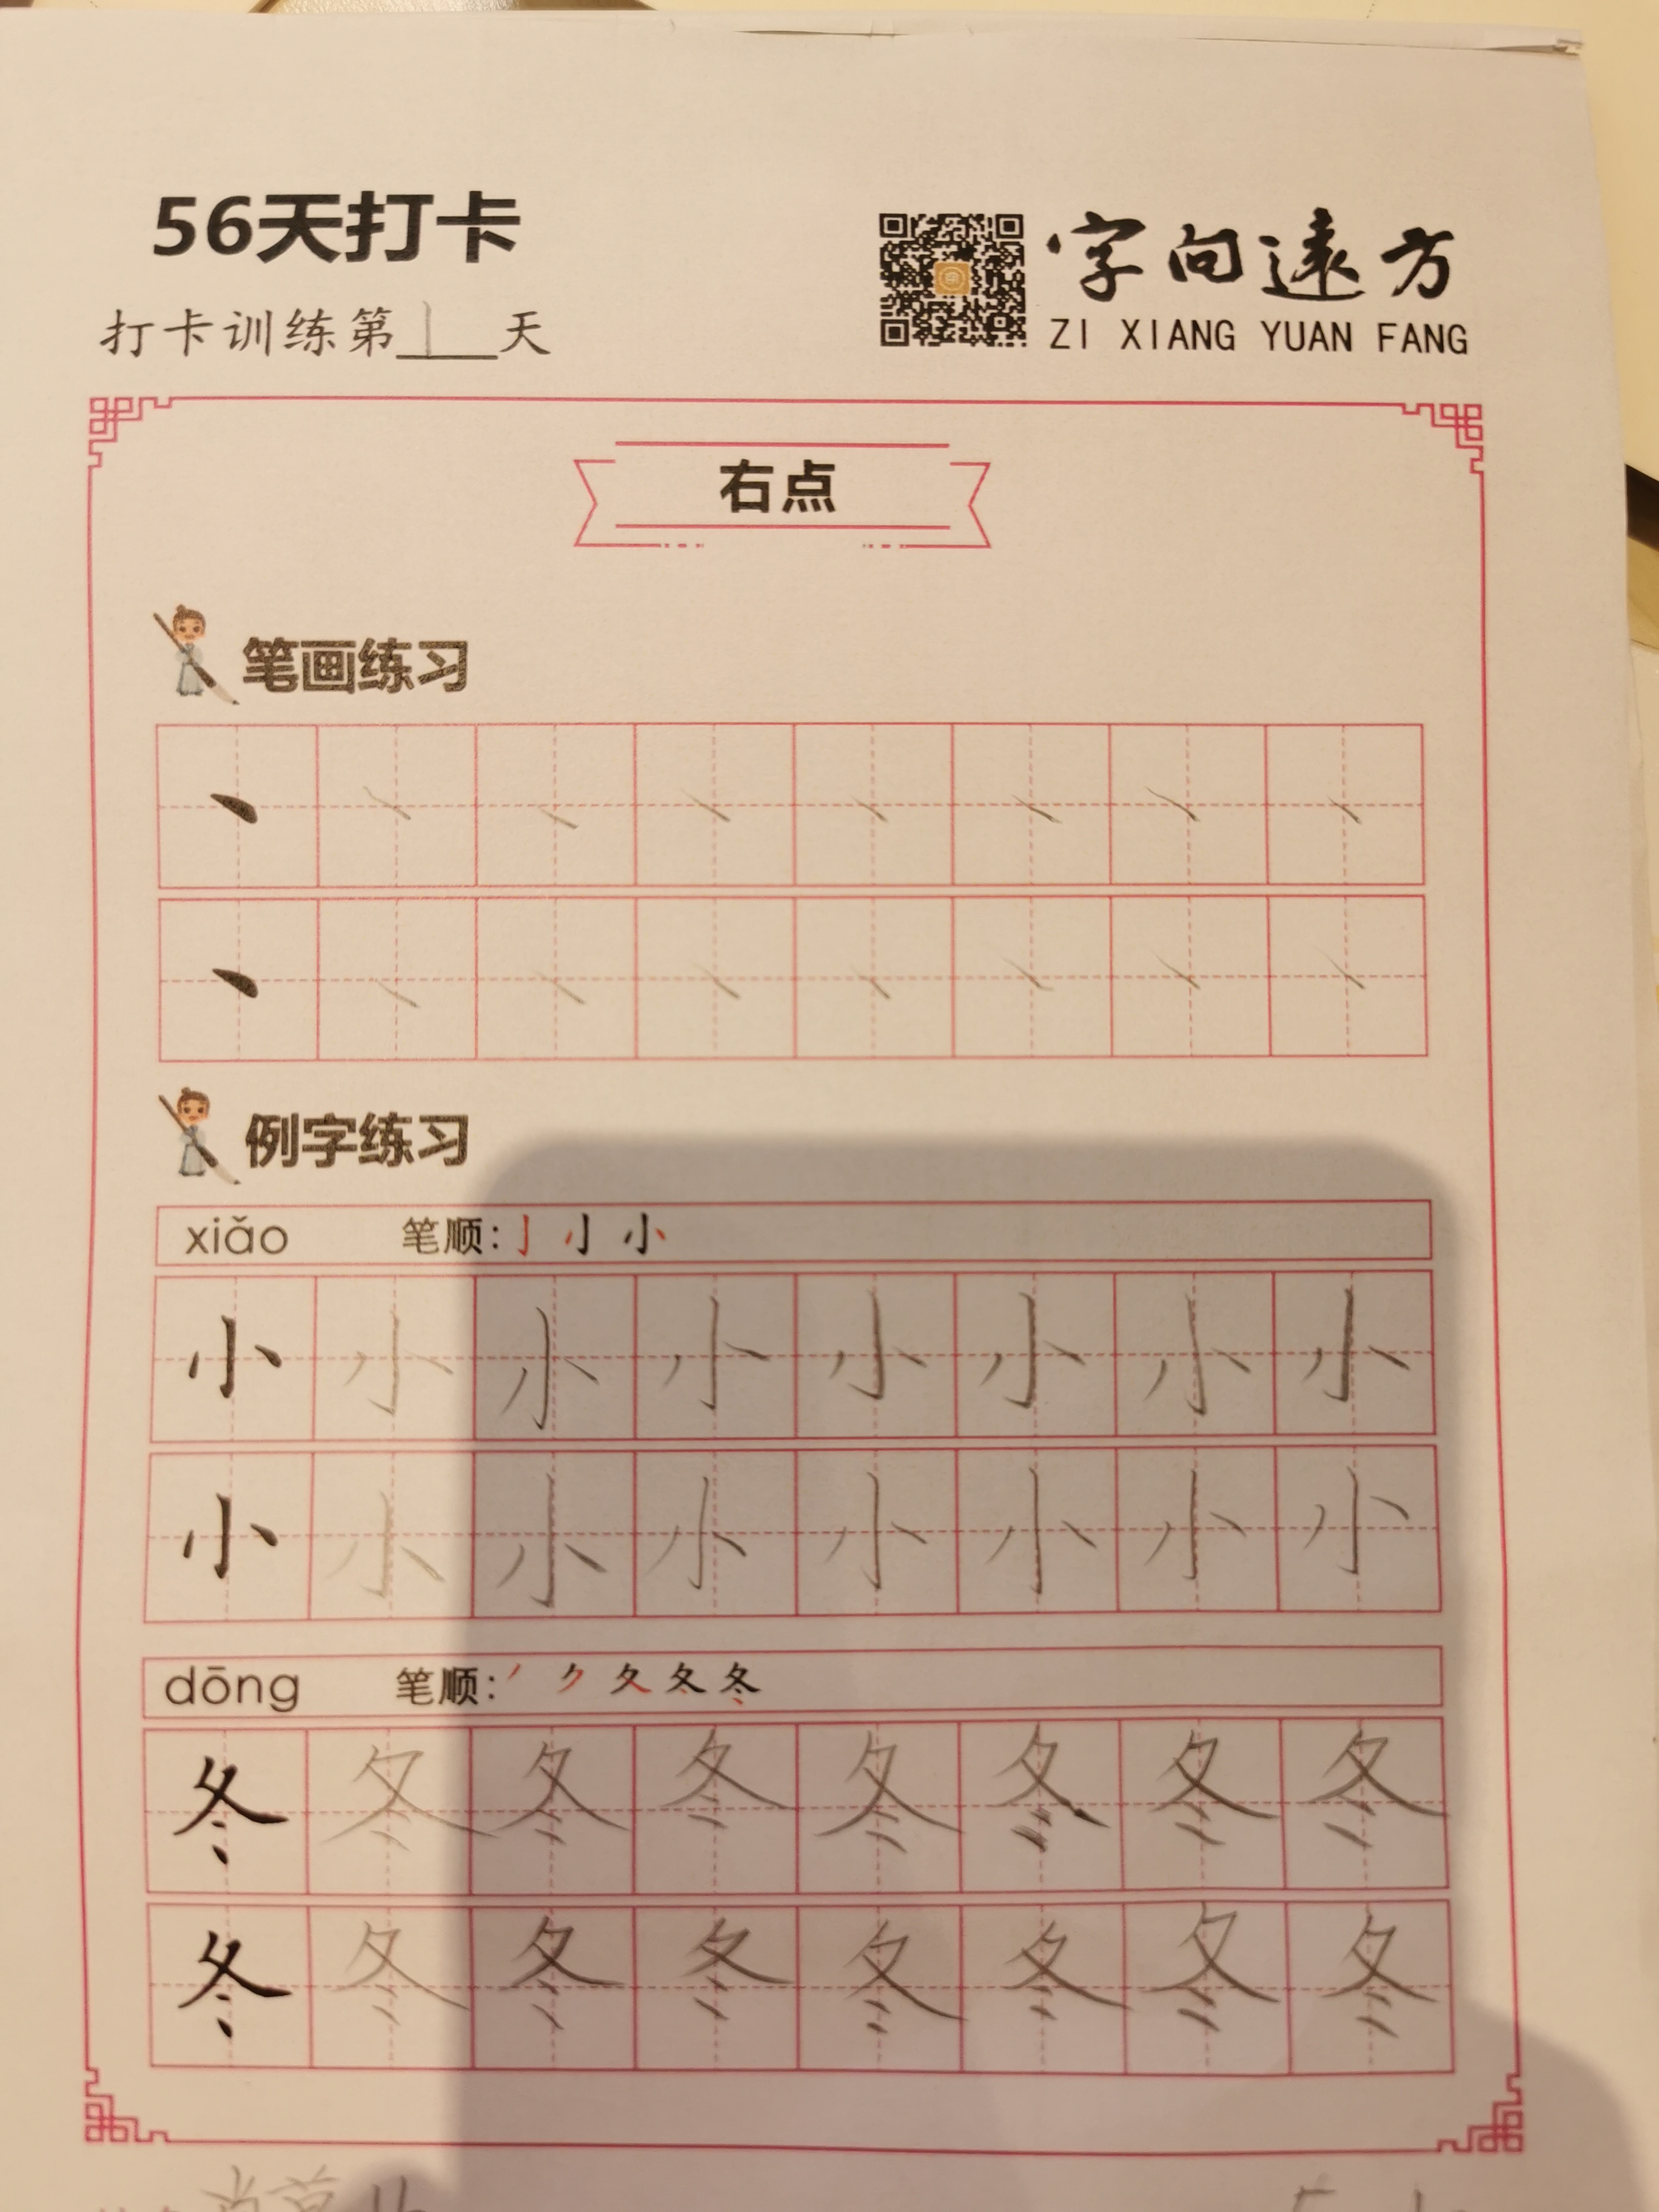 56天打卡
打卡训练第1天
字向遠方
ZI XIANG YUAN FANG
右点
笔画练习
丶丶丶丶丶丶丶丶
丶丶丶丶丶丶丶丶
例字练习
xiǎo 笔顺: 亅 小
小小小小小小小小
小小小小小小小小
dōng 笔顺: 丿 ク 夂 冬
冬冬冬冬冬冬冬冬
冬冬冬冬冬冬冬冬